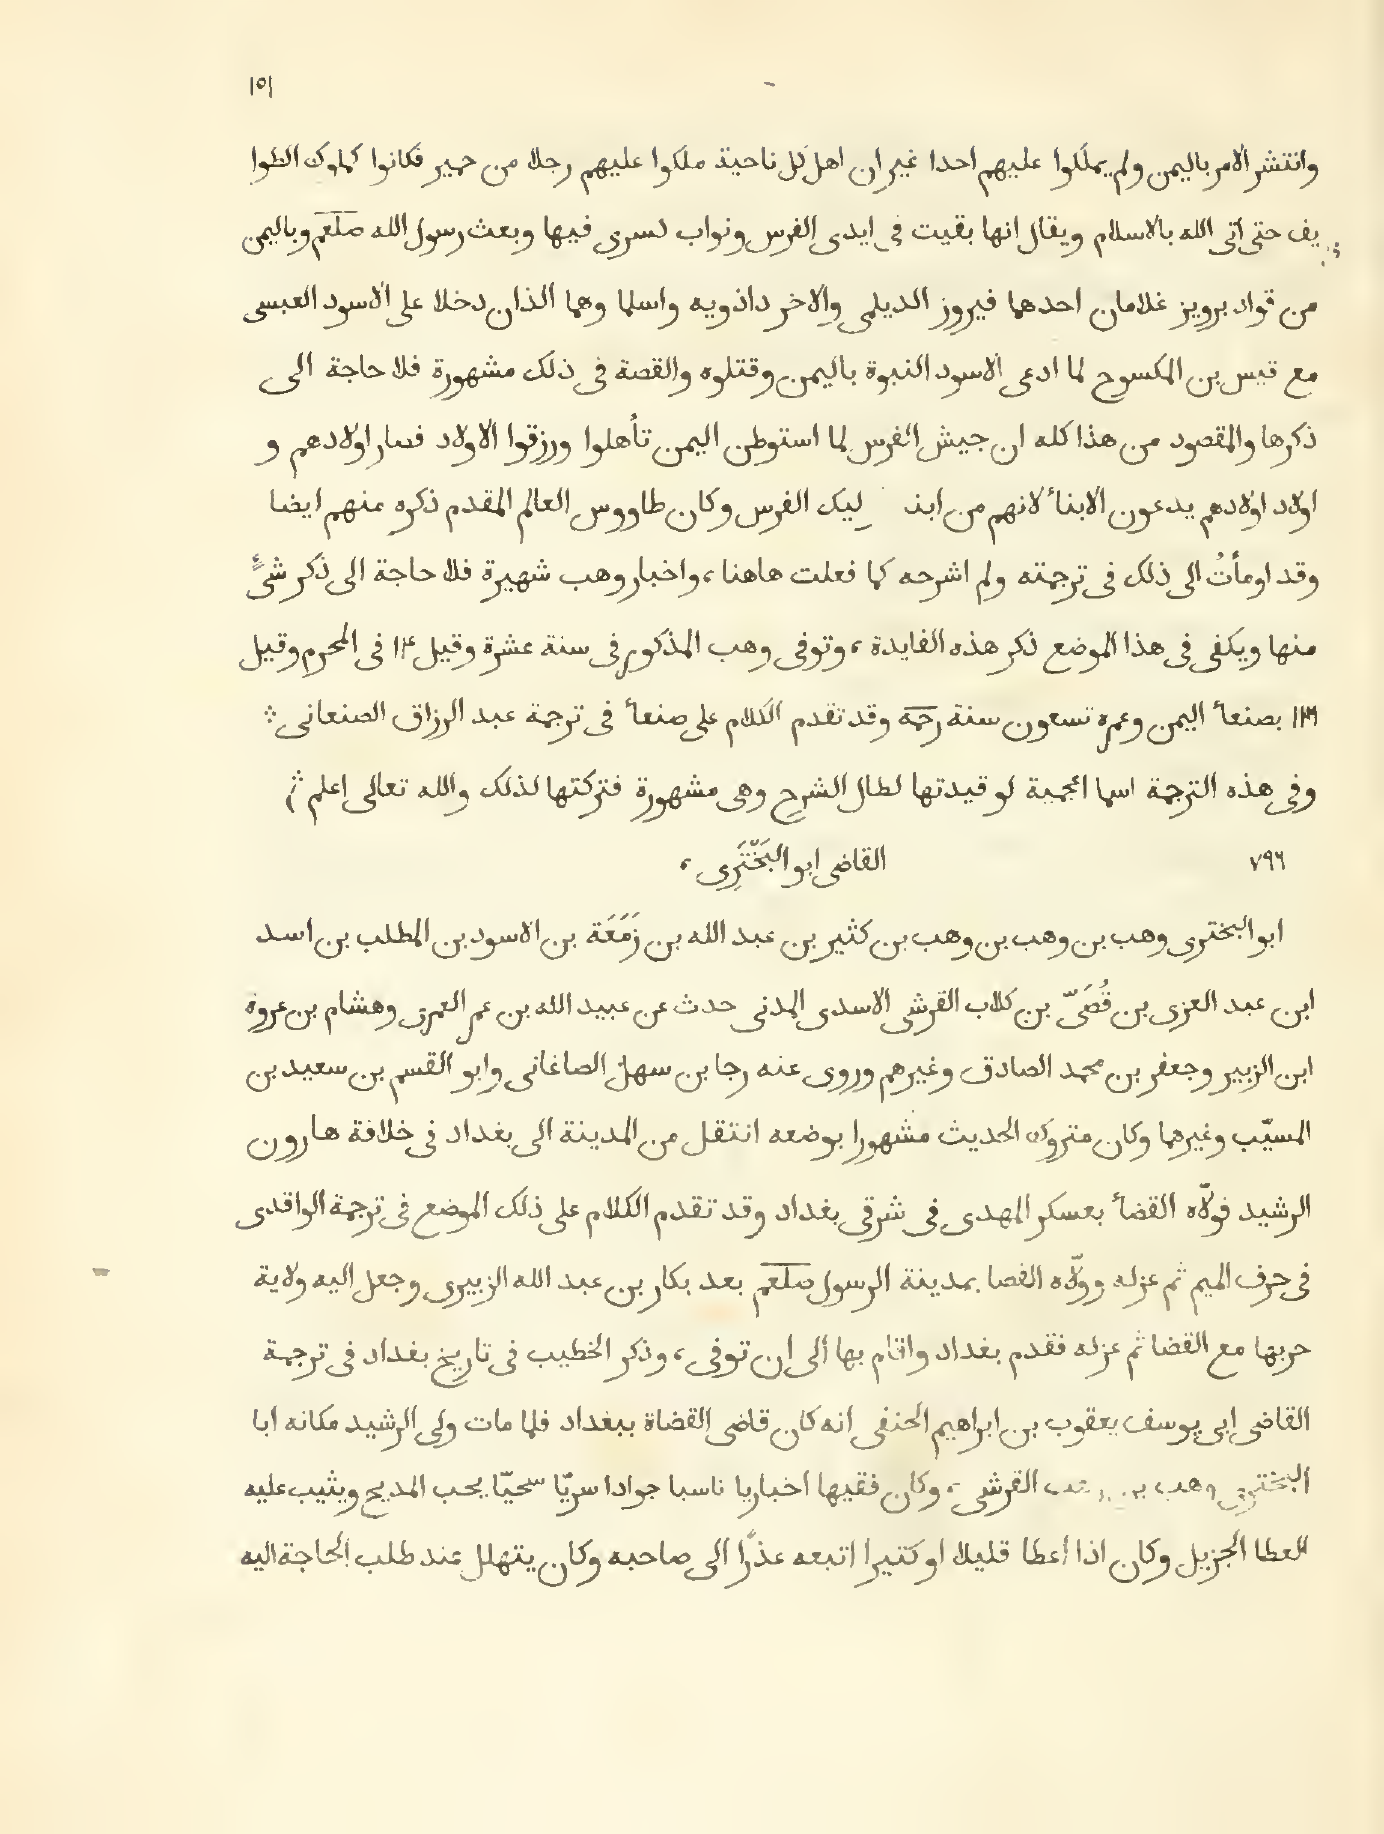 ١٥١
وانتشر الامر باليمن ولم يملّكوا عليهم احدا غير ان اهل كل ناحية ملكوا عليهم رجلا من حمير فكانوا كملوك الطوا
يف حتى اتى الله بالاسلام ويقال انها بقيت فى ايدى الفرس ونواب كسرى فيها وبعث رسول الله صلعم وباليمن
من قواد برويز غلامان احدهما فيروز الديلمى والاخر داذويه واسلما وهما الذان دخلا على الاسود العبسى
مع قيس بن المكسوح لما ادعى الاسود النبوة باليمن وقتلوه والقصة فى ذلك مشهورة فلا حاجة الى
ذكرها والمقصود من هذا كله ان جيش الفرس لما استوطن اليمن تأهلوا ورزقوا الاولاد فصار اولادهم و
اولاد اولادهم يدعون الابنأ لانهم من ليك الفرس وكان طاووس العالم المقدم ذكره منهم ايضا
وقد اومأتُ الى ذلك فى ترجمته ولم اشرحه كما فعلت هاهنا، واخبار وهب شهيرة فلا حاجة الى ذكر شىءٍ
منها ويكفى فى هذا الموضع ذكر هذه الفايدة، وتوفى وهب المذكور فى سنة عشرة وقيل ١١٤ فى المحرم وقيل
١١٦ بصنعأ اليمن وعمره تسعون سنة رحمه وقد تقدم الكلام على صنعأ فى ترجمة عبد الرزاق الصنعانى ∴
وفى هذه الترجمة اسما اعجمية لو قيدتها لطال الشرح وهى مشهورة فتركتها لذلك والله تعالى اعلم ∴
٧٩٦ القاضى ابو البَخْتَرِى،
ابو البخترى وهب بن وهب بن وهب بن كثير بن عبد الله بن زَمَعَة بن الاسود بن المطلب بن اسد
ابن عبد العزى بن قُصَىّ بن كلاب القرشى الاسدى المدنى حدث عن عبيد الله بن عمر العمرى وهشام بن عروة
ابن الزبير وجعفر بن محمد الصادق وغيرهم وروى عنه رجا بن سهل الصاغانى وابو القسم بن سعيد بن
المسيّب وغيرهما وكان متروك الحديث مشهورا بوضعه انتقل من المدينة الى بغداد فى خلافة هارون
الرشيد فولّاه القضأ بعسكر المهدى فى شرقى بغداد وقد تقدم الكلام على ذلك الموضع فى ترجمة الواقدى
فى حرف الميم ثم عزله وولّاه القضا بمدينة الرسول صلعم بعد بكار بن عبد الله الزبيرى وجعل اليه ولاية
حربها مع القضا ثم عزله فقدم بغداد واقام بها الى ان توفى، وذكر الخطيب فى تاريخ بغداد فى ترجمة
القاضى ابى يوسف يعقوب بن ابراهيم الحنفى انه كان قاضى القضاة ببغداد فلما مات ولى الرشيد مكانه ابا
البخترى وهب بن وهب القرشى، وكان فقيها اخباريا ناسبا جوادا سريّا سخيّا يحب المديح ويثيب عليه
العطا الجزيل وكان اذا اعطا قليلا او كثيرا اتبعه عذرًا الى صاحبه وكان يتهلل عند طلب الحاجة اليه